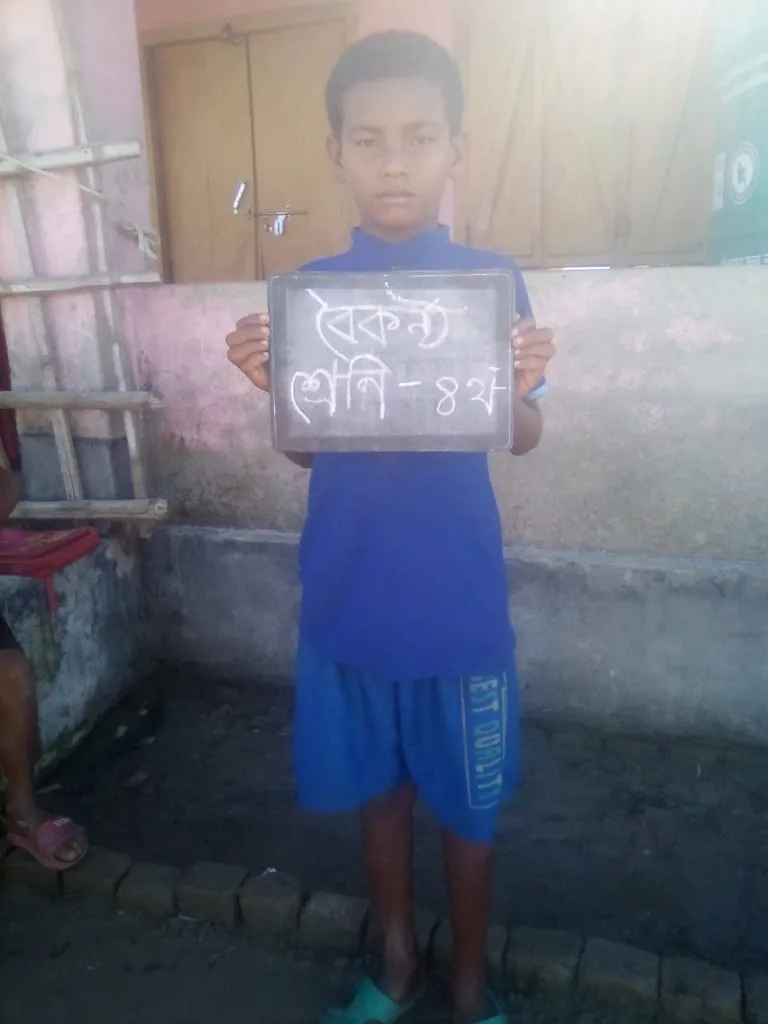 বৈকন্ঠ
শ্রেণি - ৪র্থ
BEST QUALITY